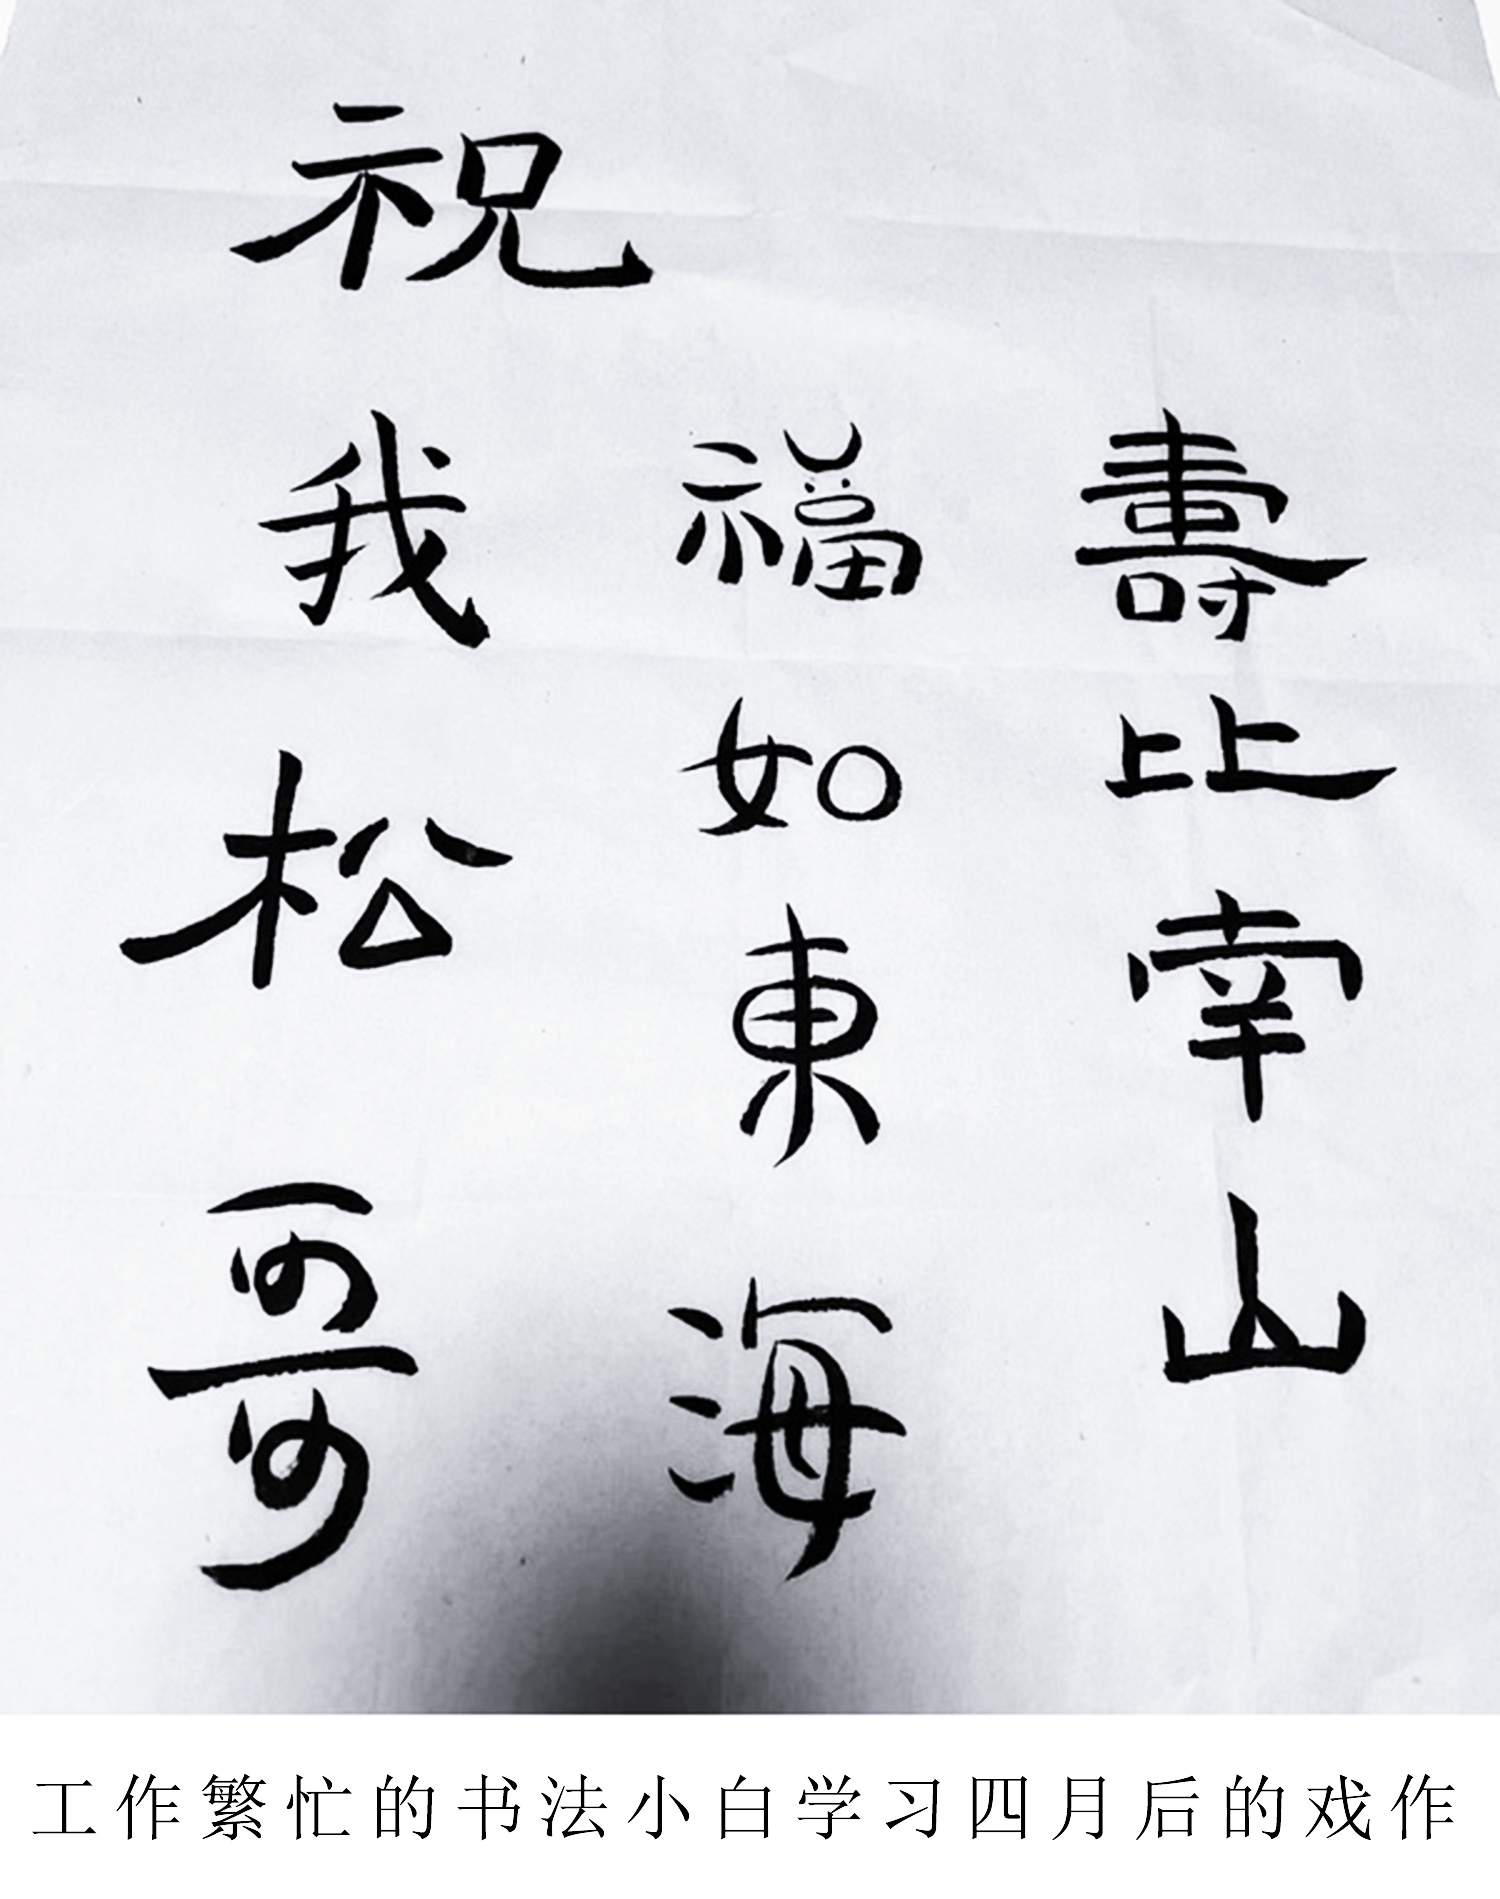 祝我松哥
福如東海
壽比南山
工作繁忙的书法小白学习四月后的戏作